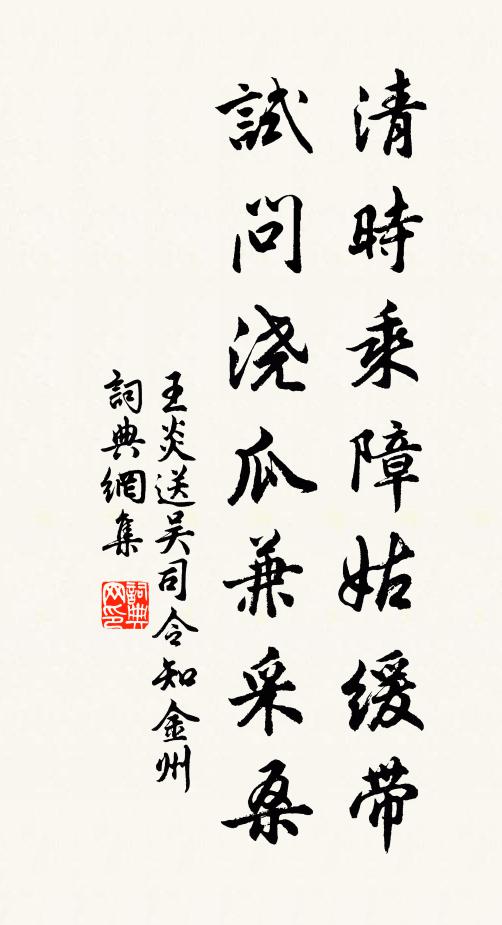 清時乘障姑緩帶
試問浇瓜兼采桑
王炎送吴司令知金州
詞典網集
詞典网印